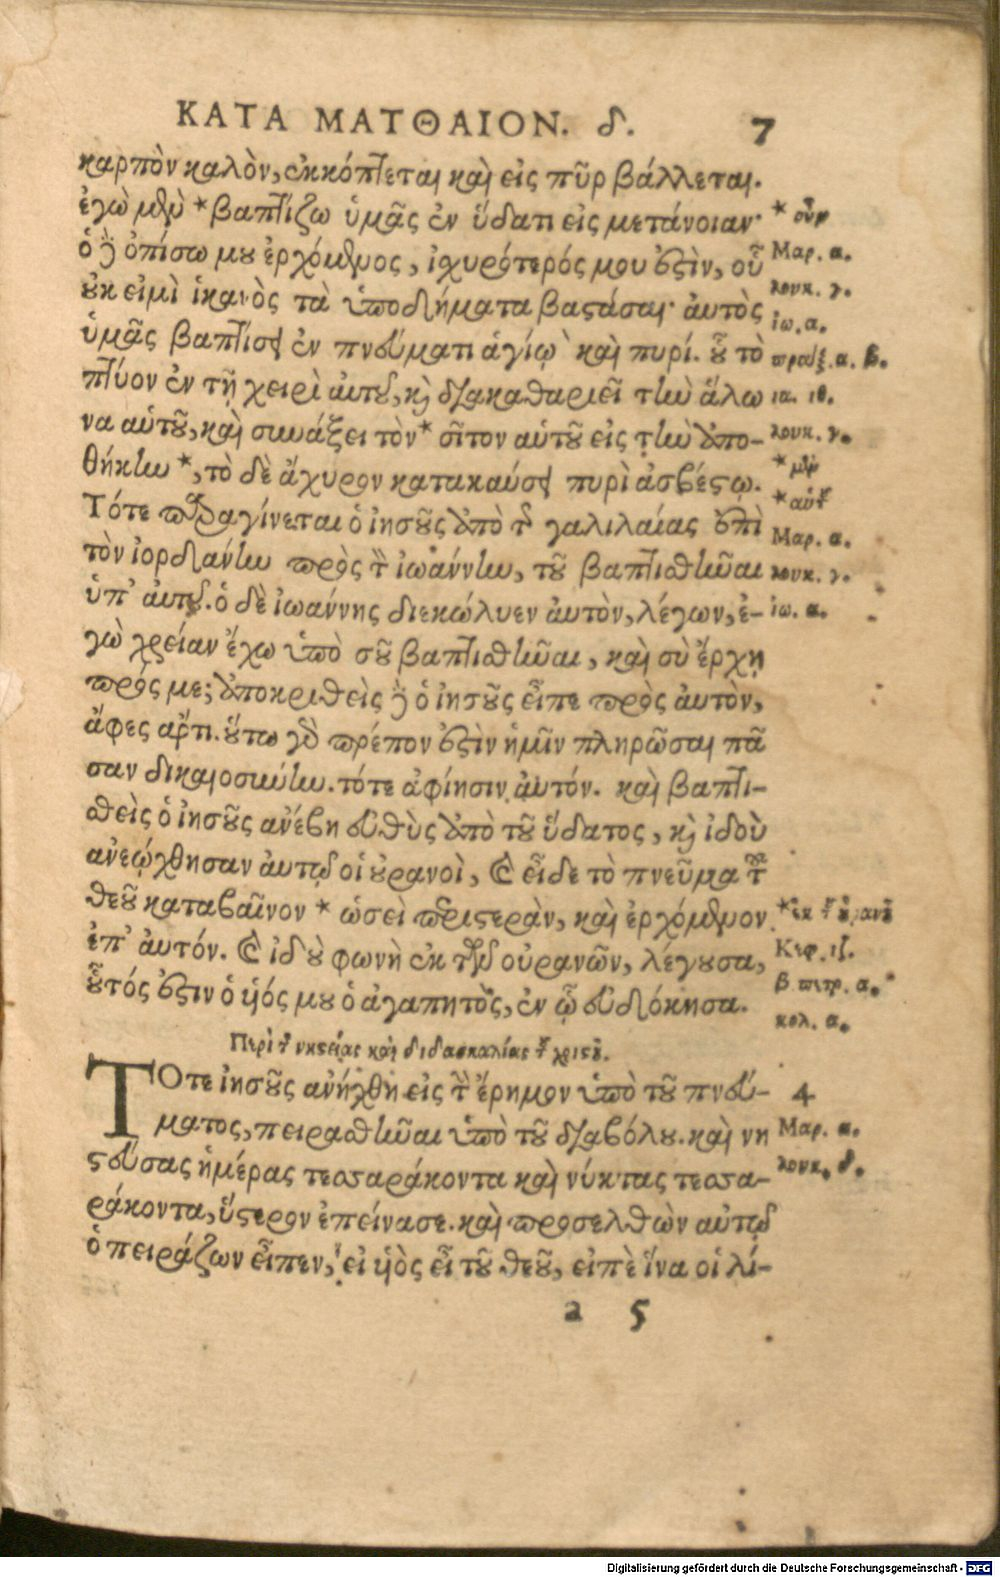 ΚΑΤΑ ΜΑΤΘΑΙΟΝ. δ. 7
καρπὸν καλὸν, ἐκκόπτεται καὶ εἰς πῦρ βάλλεται.
ἐγὼ μὲν * βαπτίζω ὑμᾶς ἐν ὕδατι εἰς μετάνοιαν·
ὁ δὲ ὀπίσω μου ἐρχόμενος, ἰχυρότερός μου ἐστὶν, οὗ
οὐκ εἰμὶ ἱκανὸς τὰ ὑποδήματα βαστάσαι· ἀυτὸς
ὑμᾶς βαπτίσει ἐν πνεύματι ἁγίῳ καὶ πυρί. οὗ τὸ
πτύον ἐν τῇ χειρὶ ἀυτοῦ, καὶ διακαθαριεῖ τὴν ἅλω
να αὑτοῦ, καὶ συνάξει τὸν * σῖτον αὑτοῦ εἰς τὴν ἀπο-
θήκην *, τὸ δὲ ἄχυρον κατακαύσει πυρὶ ἀσβέστῳ.
Τότε παραγίνεται ὁ ἰησοῦς ἀπὸ τῆς γαλιλαίας ἐπὶ
τὸν ἰορδάνην πρὸς τὸν ἰωάννην, τοῦ βαπτισθῆναι
ὑπ' ἀυτοῦ. ὁ δὲ ἰωάννης διεκώλυεν ἀυτὸν, λέγων, ἐ-
γὼ χρείαν ἔχω ὑπὸ σοῦ βαπτισθῆναι, καὶ σὺ ἔρχῃ
πρός με; ἀποκριθεὶς δὲ ὁ ἰησοῦς εἶπε πρὸς ἀυτὸν,
ἄφες ἄρτι. οὕτω γὰρ πρέπον ἐστὶν ἡμῖν πληρῶσαι πᾶ
σαν δικαιοσύνην. τότε ἀφίησιν ἀυτόν. καὶ βαπτι-
σθεὶς ὁ ἰησοῦς ἀνέβη εὐθὺς ἀπὸ τοῦ ὕδατος, καὶ ἰδοὺ
ἀνεῴχθησαν ἀυτῷ οἱ οὐρανοὶ, καὶ εἶδε τὸ πνεῦμα τοῦ
θεοῦ καταβαῖνον * ὡσεὶ περιστερὰν, καὶ ἐρχόμενον
ἐπ' ἀυτόν. καὶ ἰδοὺ φωνὴ ἐκ τῶν οὐρανῶν, λέγουσα,
οὗτός ἐστιν ὁ ὑιός μου ὁ ἀγαπητὸς, ἐν ᾧ εὐδόκησα.
Περὶ τῆς νηστείας καὶ διδασκαλίας τοῦ χριστοῦ.
ΤΟτε ἰησοῦς ἀνήχθη εἰς τὴν ἔρημον ὑπὸ τοῦ πνεύ-
ματος, πειρασθῆναι ὑπὸ τοῦ διαβόλου. καὶ νη
στεύσας ἡμέρας τεσσαράκοντα καὶ νύκτας τεσσα-
ράκοντα, ὕστερον ἐπείνασε. καὶ προσελθὼν αὐτῷ
ὁ πειράζων εἶπεν, εἰ ὑιὸς εἶ τοῦ θεοῦ, εἰπὲ ἵνα οἱ λί-
a 5
Μαρ. α.
λουκ. γ.
ἰω. α.
πραξ. α. β.
ια. ιθ.
λουκ. γ.
* μὲν
Μαρ. α.
λουκ. γ.
ἰω. α.
* ἐκ τοῦ οὐρανοῦ
Κεφ. ιζ.
β πετρ. α.
κολ. α.
4
Μαρ. α.
λουκ. δ.